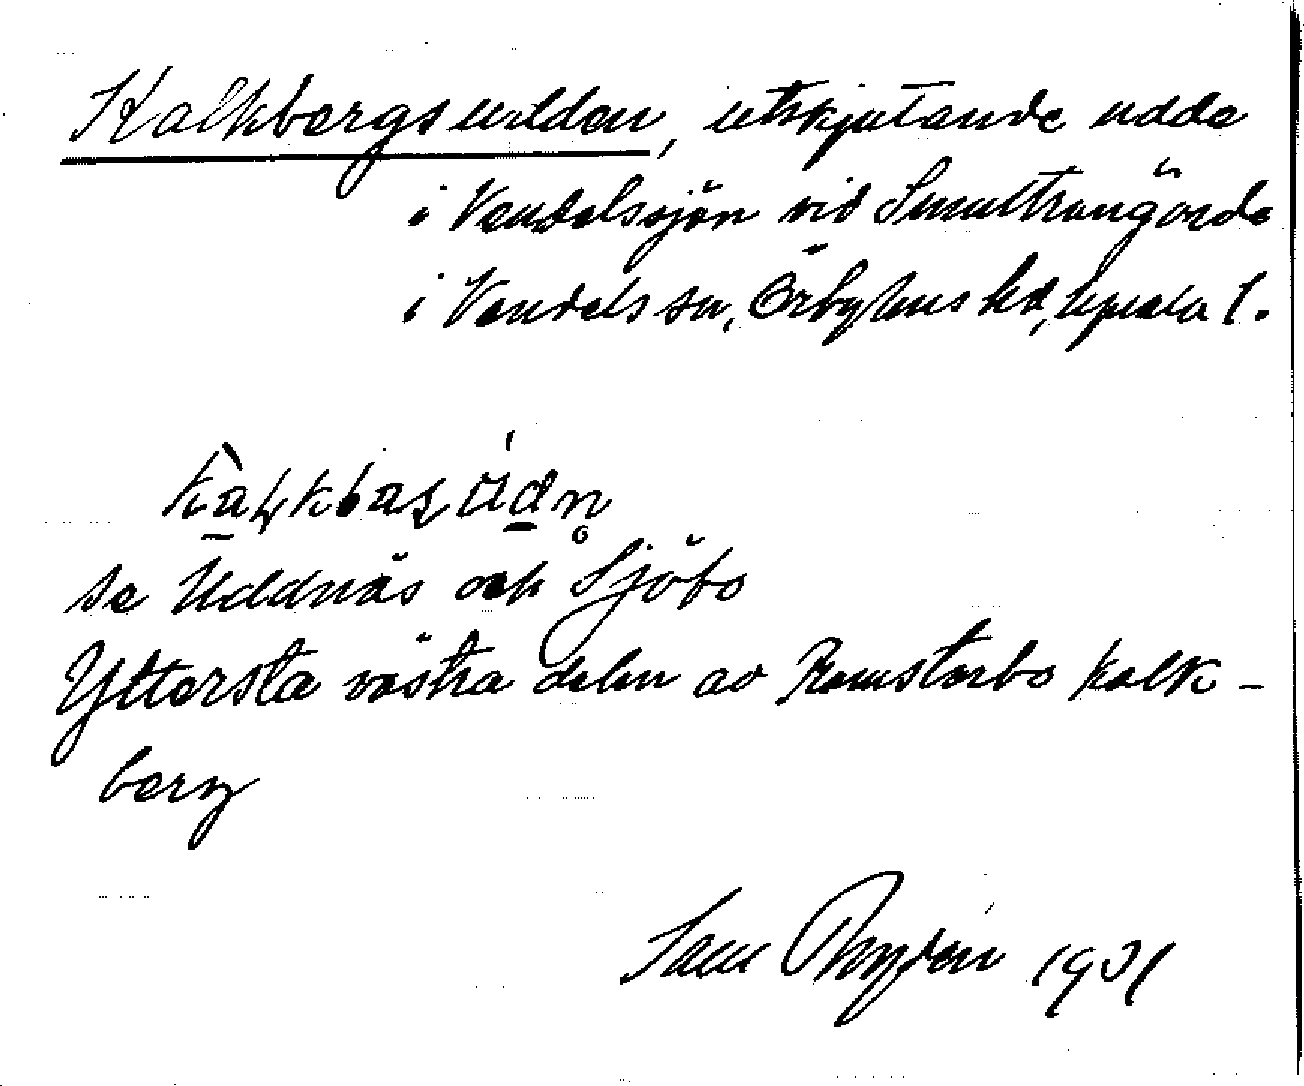 Kalkbergsudden, utskjutande udde
i Vendelssjön vid Smultrongärde
i Vendels sn, Örbyhus hd, Upsala l.
se Uddnäs och Sjöbo
Yttersta västra delen av Ramstorbo kalk-
berg
Sam 1931